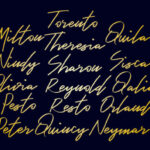 Torento
Milton Theresia Quila
Nindy Sharon Sisca
Olivia Reynold Qalia
Pesto Resto Orlando
Peter Quincy Neymar